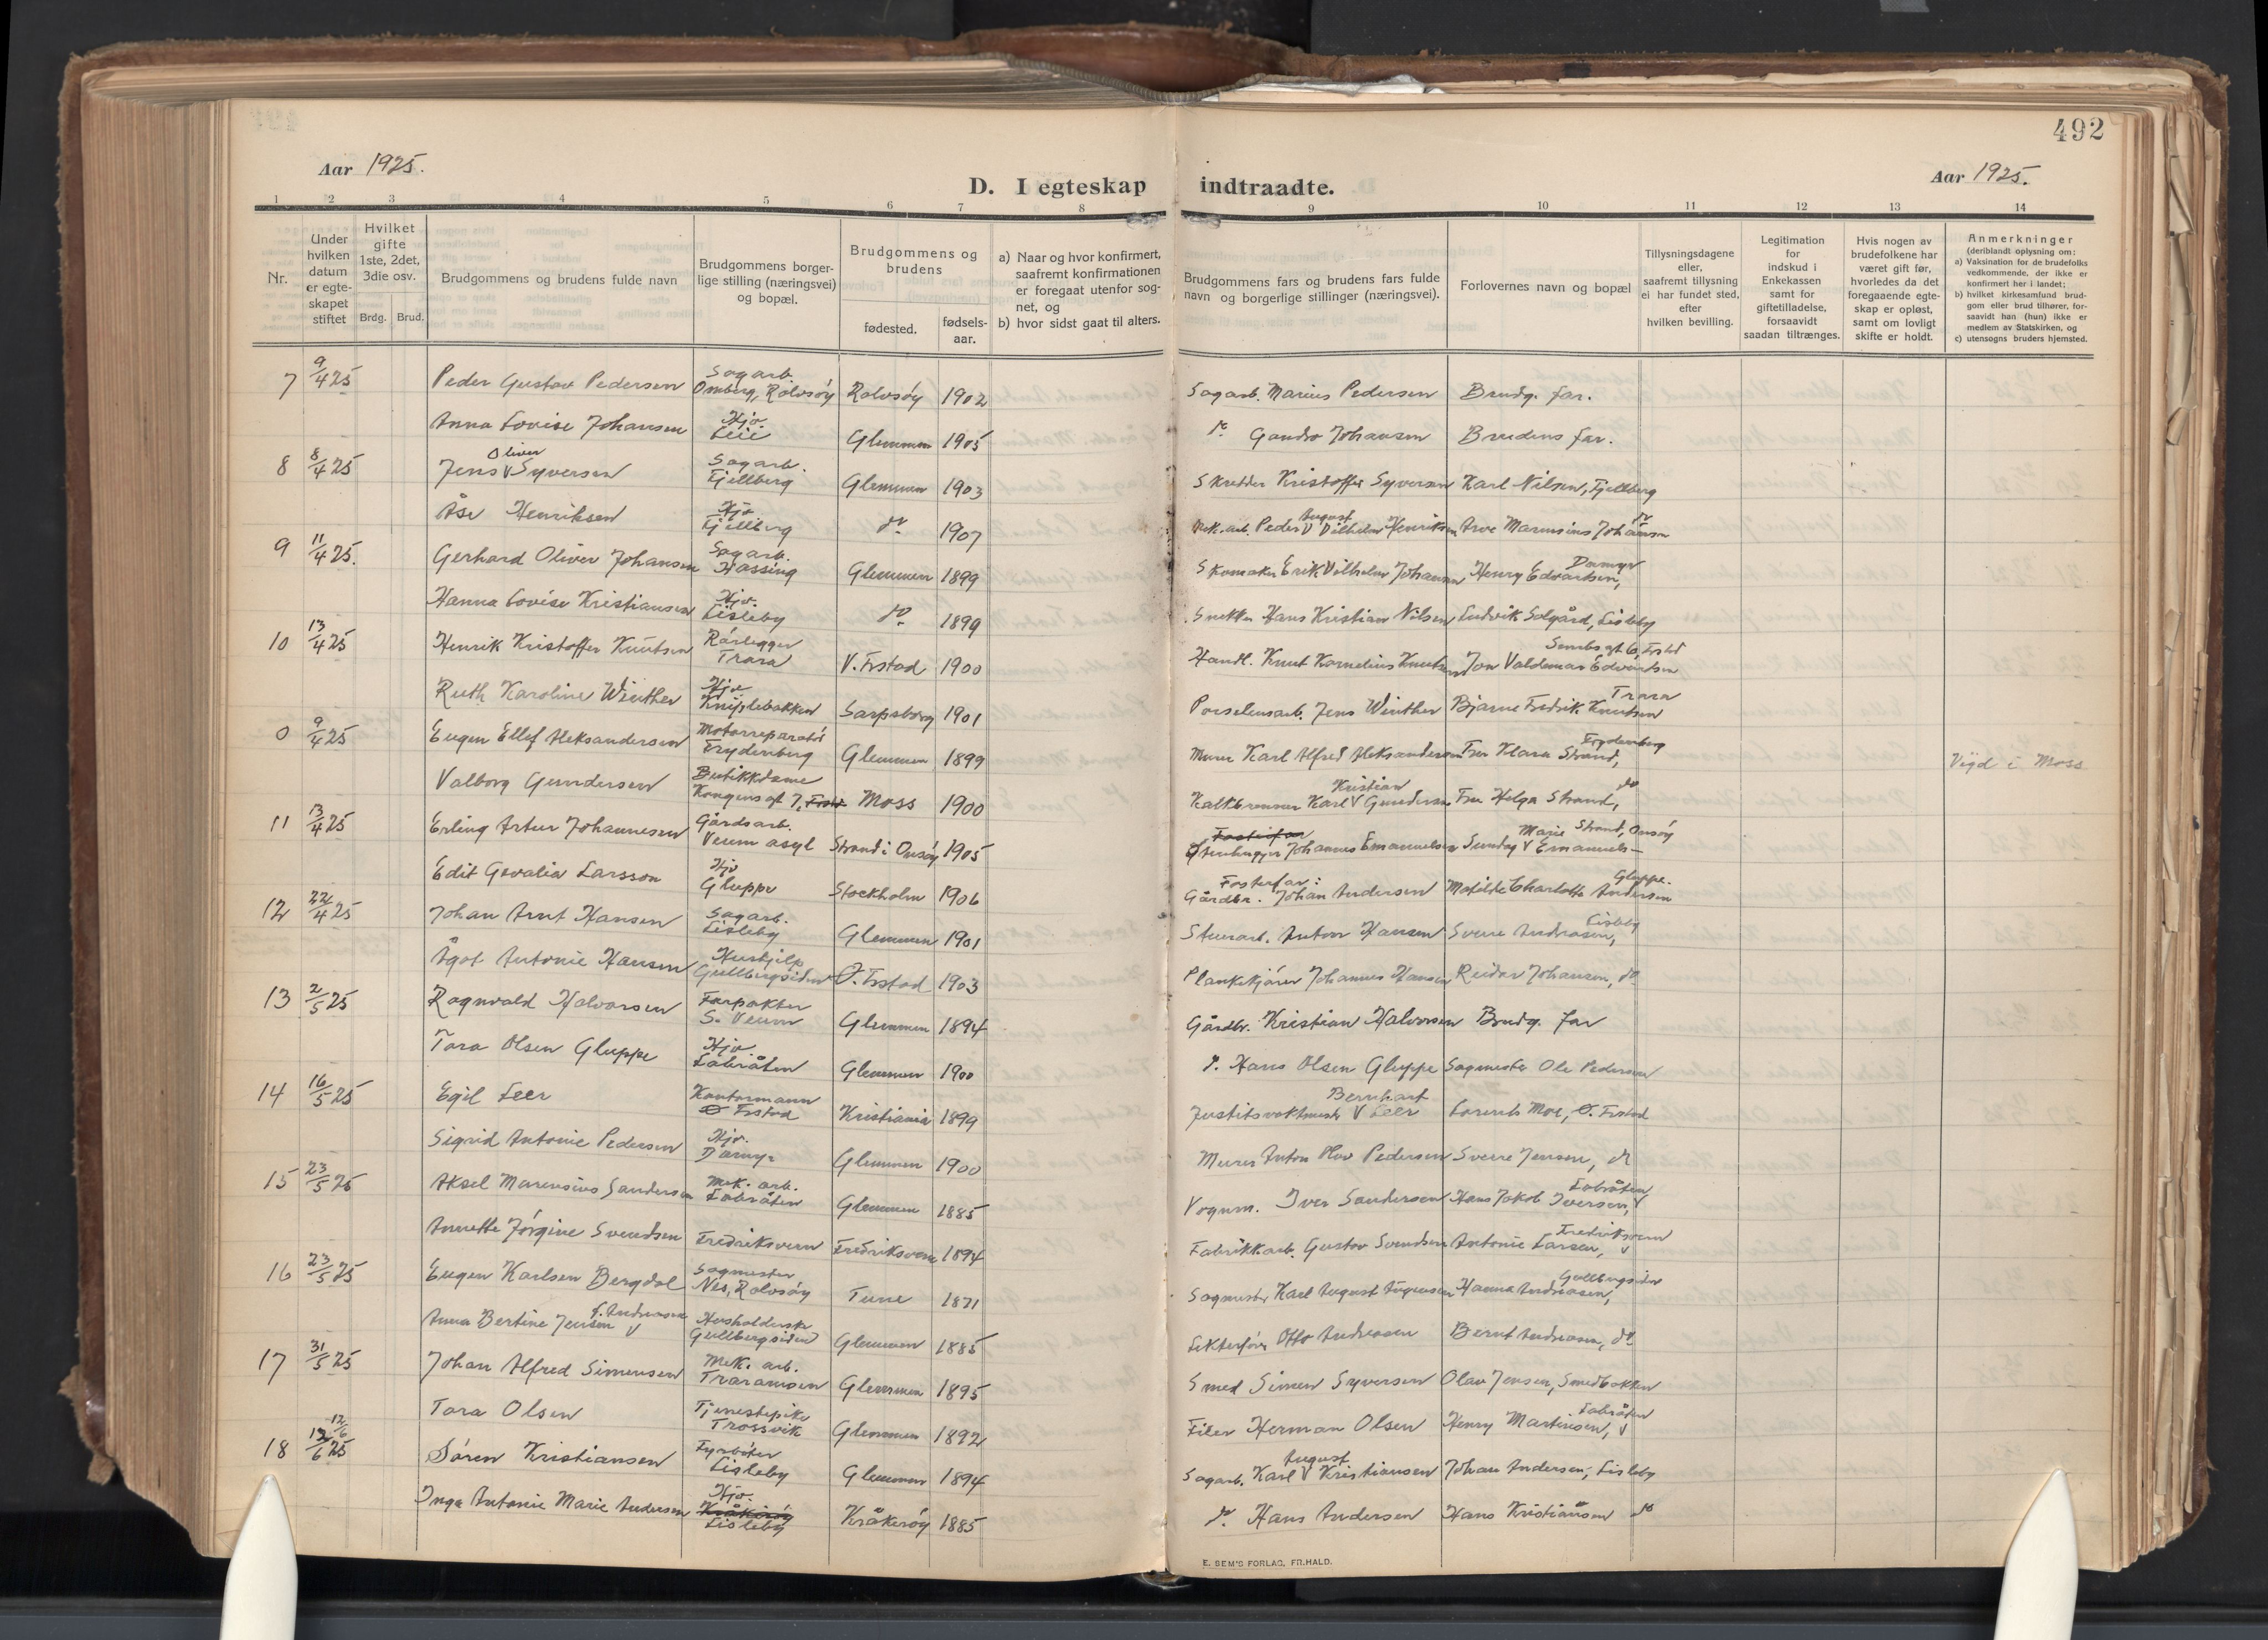 492
Aar 1925.
Aar 1925.
D. I egteskap indtraadte.
1 2 3 4 5 6 7 8 9 10 11 12 13 14
Nr.
Under hvilken datum er egte- skapet stiftet
Hvilket gifte 1ste, 2det, 3die osv.
Brdg. Brud.
Brudgommens og brudens fulde navn
Brudgommens borger- lige stilling (næringsvei) og bopæl.
Brudgommens og brudens
fødested.
fødsels- aar.
a) Naar og hvor konfirmert, saafremt konfirmationen er foregaat utenfor sog- net, og
b) hvor sidst gaat til alters.
Brudgommens fars og brudens fars fulde navn og borgerlige stillinger (næringsvei).
Forlovernes navn og bopæl
Tillysningsdagene eller, saafremt tillysning ei har fundet sted, efter hvilken bevilling.
Legitimation for indskud i Enkekassen samt for giftetilladelse, forsaavidt saadan tiltrænges.
Hvis nogen av brudefolkene har været gift før, hvorledes da det foregaaende egte- skap er opløst, samt om lovligt skifte er holdt.
Anmerkninger (deriblandt oplysning om:
a) Vaksination for de brudefolks vedkommende, der ikke er konfirmert her i landet;
b) hvilket kirkesamfund brud- gom eller brud tilhører, for- saavidt han (hun) ikke er medlem av Statskirken, og
c) utensogns bruders hjemsted.
7 9/4 25 Peder Gustav Pedersen Sagarb. Omberg, Rolvsöy Rolvsöy 1902 Sagarb. Marius Pedersen Brudg. far.
Anna Lovise Johansen Hjv. Leie Glemmen 1905 do Johansen Brudens far.
8 8/4 25 Jens Oliver Syversen Sagarb. Fjellberg Glemmen 1903 Skredder Kristoffer Syversen Karl Nilsen, Fjellberg
Åse Henriksen Hjv Fjellberg do 1907 Mek. arb. Peder August Vilhelm Henriksen Arve Marensius Johansen do
9 11/4 25. Gerhard Oliver Johansen Sagarb. Hassing Glemmen 1899 Skomaker Erik Vilhelm Johansen Henry Edvartsen, Damyr
Hanna Lovise Kristiansen Hjv. Lisleby do 1899 Snekker Hans Kristian Nilsen Ludvik Solgård, Lisleby
10 13/4 25 Henrik Kristoffer Knutsen Rörlegger Trara V. Frstad 1900 Handl. Knut Kornelius Knutsen Jon Valdemar Edvartsen
Ruth Karoline Winther Hjv. Kniplebakken Sarpsborg 1901 Porselensarb. Jens Winther Bjarne Fredrik Knutsen Trara
0 9/4 25 Eugen Ellef Aleksandersen Motorreparatör Frydenberg Glemmen 1899 Murer Karl Alfred Aleksandersen Fru Klara Strand, Frydenberg Vigd i Moss
Valborg Gundersen Butikkdame Kongensgt 7, Frstd Moss 1900 Kalkbrenner Karl Kristian Gundersen Fru Helga Strand, do
11 13/4 25 Erling Artur Johannesen Gårdsarb. Veum asyl Strand i Onsöy 1905 Fosterfar Stenhugger Johannes Emanuelsen Sunday Marie Emanuels- Strand, Onsöy
Edit Gevalia Larsson Hjv Gluppe Stockholm 1906 Fosterfar: Gårdbr. Johan Andersen Matilde Charlotte Andersen Gluppe.
12 22/4 25 Johan Arnt Hansen Sagarb. Lisleby Glemmen 1901 Stuerarb. Anton Hansen Sverre Andreasen, Lisleby
Ågot Antonie Hansen Hushjelp Gullbergsiden Ö. Frstad 1903 Plankekjörer Johannes Hansen Reidar Johansen, do
13 2/5 25 Ragnvald Halvorsen Forpakter S. Veum Glemmen 1894 Gårdbr. Kristian Halvorsen Brudg. far
Tora Olsen Gluppe Hjv Labråten Glemmen 1900 do. Hans Olsen Gluppe Sagmester Ole Pedersen
14 16/5 25 Egil Leer Kontormann Ö Frstad Kristiania 1899 Justitsvaktmester Bernhart Leer Lorents Moe, Ö. Frstad
Sigrid Antonie Pedersen Hjv. Damyr Glemmen 1900 Murer Anton Olav Pedersen Sverre Jensen, do
15 23/5 25 Aksel Marensius Sandersen Mek. arb. Labråten Glemmen 1885 Vognm. Iver Sandersen Hans Jakob Iversen, Labråten
Annette Jörgine Svendsen Fredriksvern Fredriksvern 1894 Fabrikkarb. Gustav Svendsen Antonie Larsen, Fredriksvern
16 23/5 25 Eugen Karlsen Bergdal Sagmester Nes, Rolvsöy Tune 1871 Sagmester Karl August Hanna Andreasen, Gullbergsiden
Anna Bertine Jensen f. Andreasen Husholderske Gullbergsiden Glemmen 1885 Lekterförer Otto Andreassen Bernt Andreasen, do
17 31/5 25 Johan Alfred Simensen Mek. arb. Traramoen Glemmen 1895 Smed Simen Syversen Olav Jensen, Smedbakken
Tora Olsen Tjenestepike Trossvik Glemmen 1892 Filer Herman Olsen Henry Martinsen, Labråten
18 12/6 12/6 25 Sören Kristiansen Fyrböter Lisleby Glemmen 1894 Sagarb. Karl August Kristiansen Johan Andersen, Lisleby
Inga Antonie Marie Andersen Hjv. Kråkeröy Lisleby Kråkeröy 1885 do Hans Andersen Hans Kristiansen do
E. SEM'S FORLAG, FR.HALD.